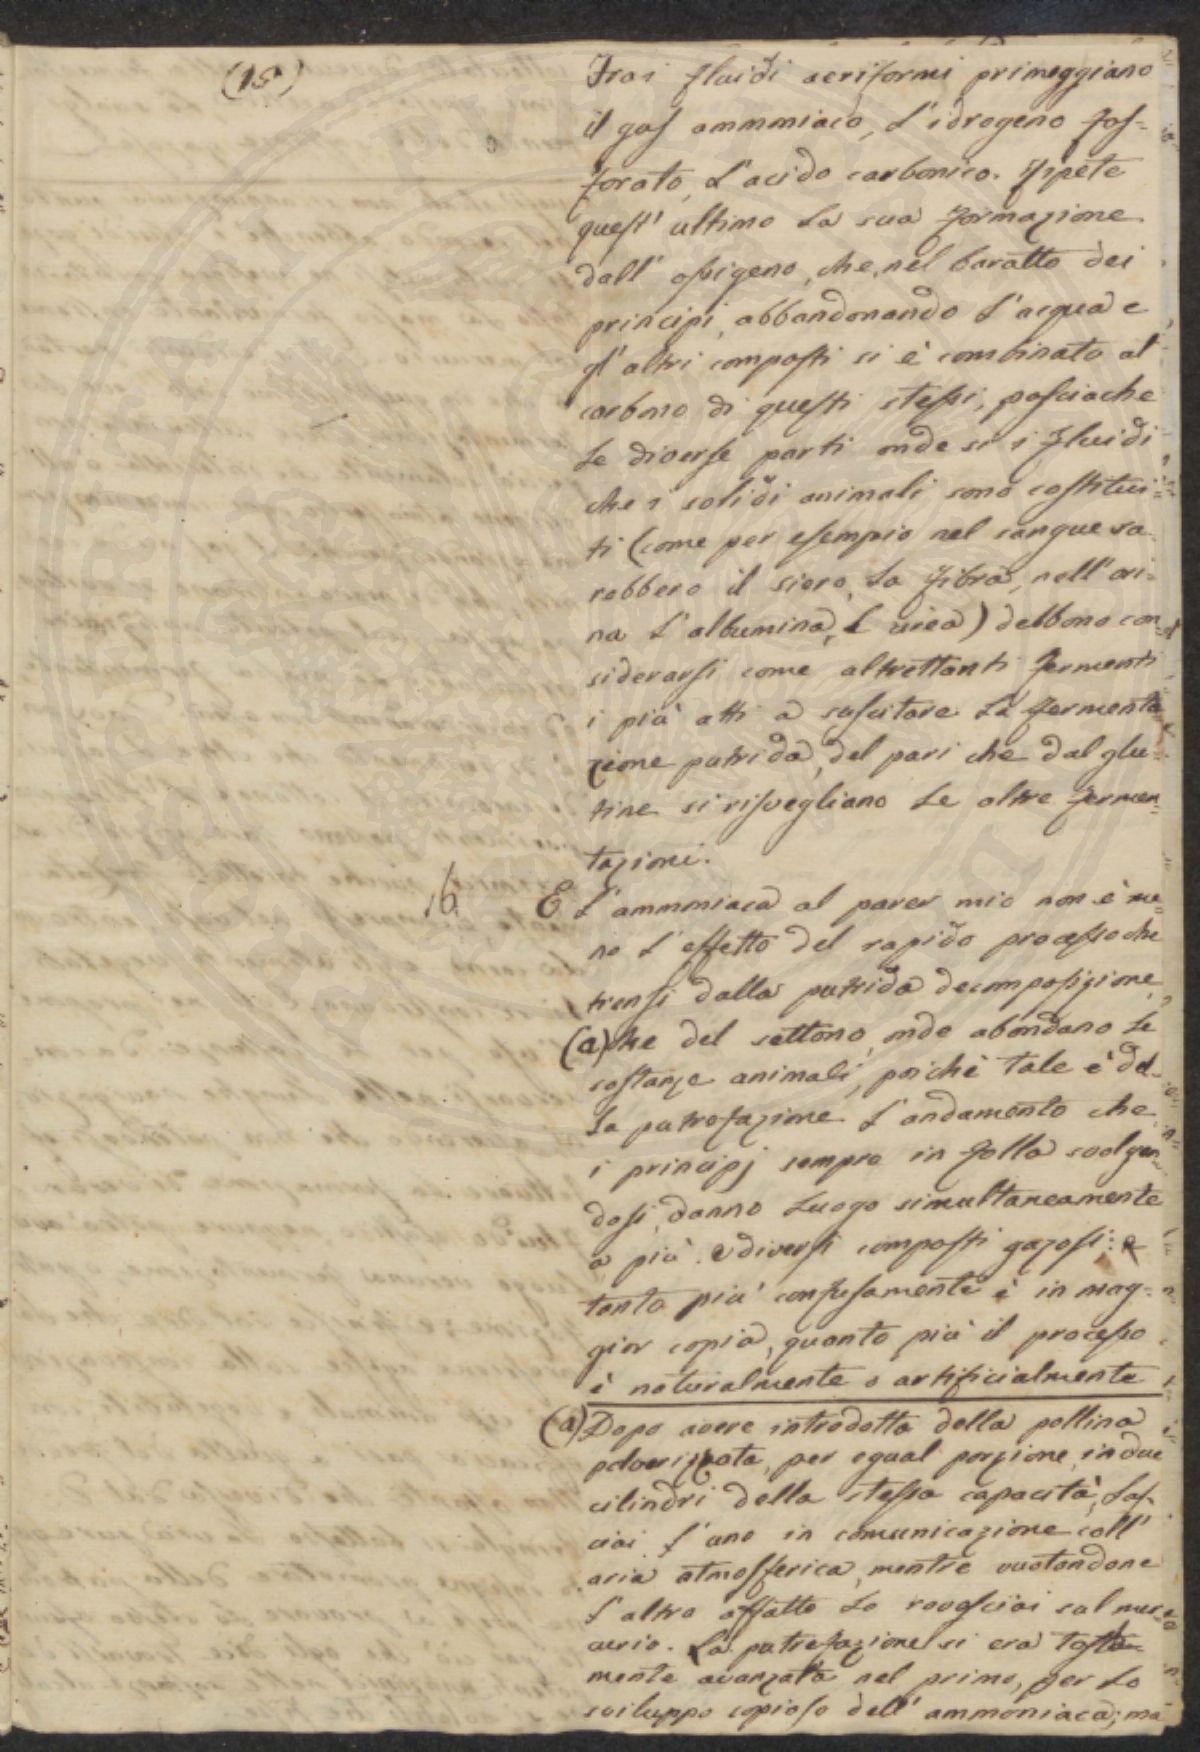 (15)
Tra i fluidi aeriformi primeggiano
il gas ammmiaco, l'idrogeno fos-
forato, l'acido carbonico. Ripete
quest' ultimo la sua formazione
dall' ossigeno, che, nel baratto dei
principj, abbandonando l'acqua e
gl'altri composti si è combinato al
carbono di questi stessi, posciache
le diverse parti onde si i fluidi
che i solidi animali sono costitui-
ti (come per esempio nel sangue sa-
rebbero il siero, la fibra, nell'ori-
na l'albumina, l'urea) debbono con-
siderarsi come altrettanti fermenti
i più atti a suscitare la fermenta
zione putrida, del pari che dal glu-
tine si risvegliano le altre fermen-
tazioni.
16. E l'ammmiaca al parer mio non è me-
no l'effetto del rapido processo che
triensi dalla putrida decomposizione,
(a) che del settono, onde abondano le
sostanze animali, poichè tale è del-
la putrefazione l'andamento che
i principj sempre in folla svolgen
dosi, danno luogo simultaneamente
a più e diversi composti gazosi: e
tanto più confusamente è in mag-
gior copia, quanto più il processo
è naturalmente o artificialmente
(a) Dopo avere introdotta della pollina
polverizzata, per egual porzione, in due
cilindri della stessa capacità, las-
ciai l'uno in comunicazione coll'
aria atmosferica, mentre vuotandone
l'altro affatto lo rovesciai sul mer-
curio. La putrefazione si era tosta-
mente avanzata nel primo, per lo
sviluppo copioso dell' ammoniaca; ma